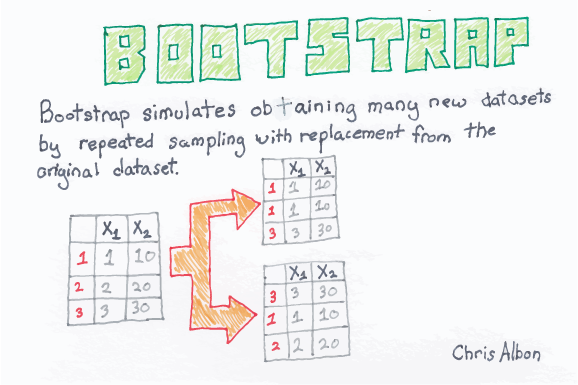 BOOTSTRAP
Bootstrap simulates obtaining many new datasets
by repeated sampling with replacement from the
original dataset.
X1 X2
1 1 10
1 1 10
3 3 30
X1 X2
1 1 10
2 2 20
3 3 30
X1 X2
3 3 30
1 1 10
2 2 20
Chris Albon